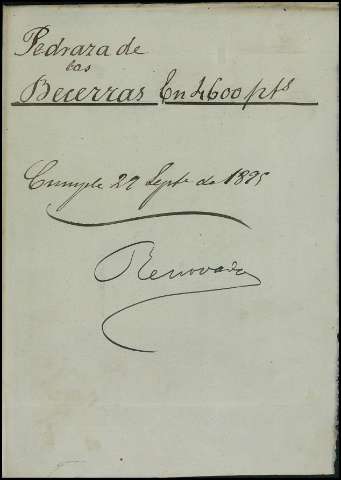 Pedraza de
las
Becerras En 4600 pts
Cumple 29 Septe de 1895
Renovada